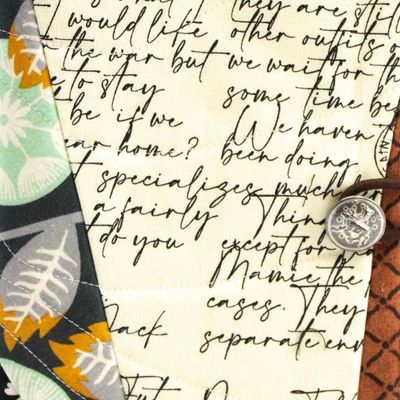 I would like
the war but
e to stay
be if we
ear home?
t specializes
a fairly
t do you
Jack
they are still
other outfits o
we wait for th
some time be
We haven
been doing
much
Thing
except for
Mamie the
cases. They
separate env